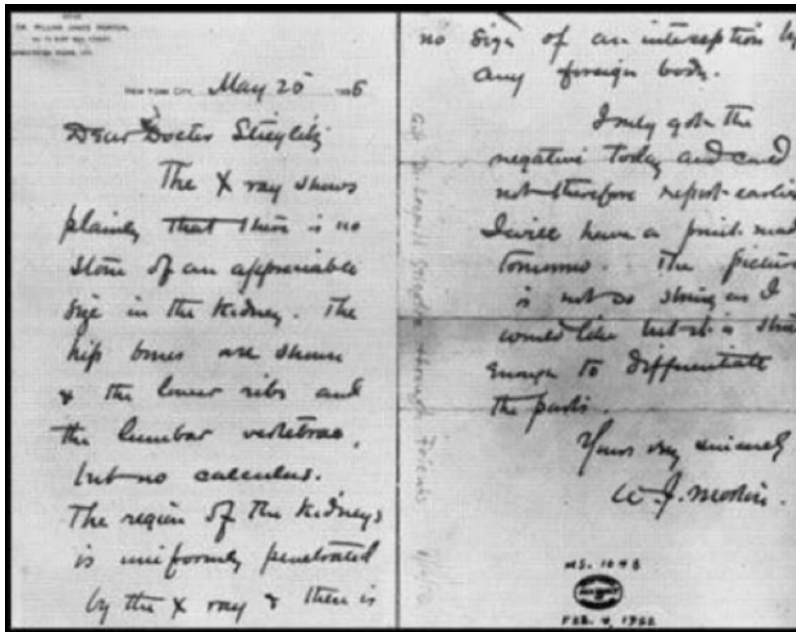 DR. WILLIAM JAMES MORTON,
NEW YORK CITY, May 25
Dear Doctor Stieglitz
The X ray shows
plainly that there is no
stone of an appreciable
size in the kidney. The
hip bones are shown
& the lower ribs and
the lumbar vertebrae,
but no calculus.
The region of the kidneys
is uniformly penetrated
by the X ray & there is
no sign of an interception by
any foreign body.
I only got the
negative today and could
not therefore report earlier
I will have a print made
tomorrow. The picture
is not so strong as I
would like but it is strong
enough to differentiate
the parts.
Yours very sincerely
W. J. Morton.
MS. 1048
FEB. 4, 1952